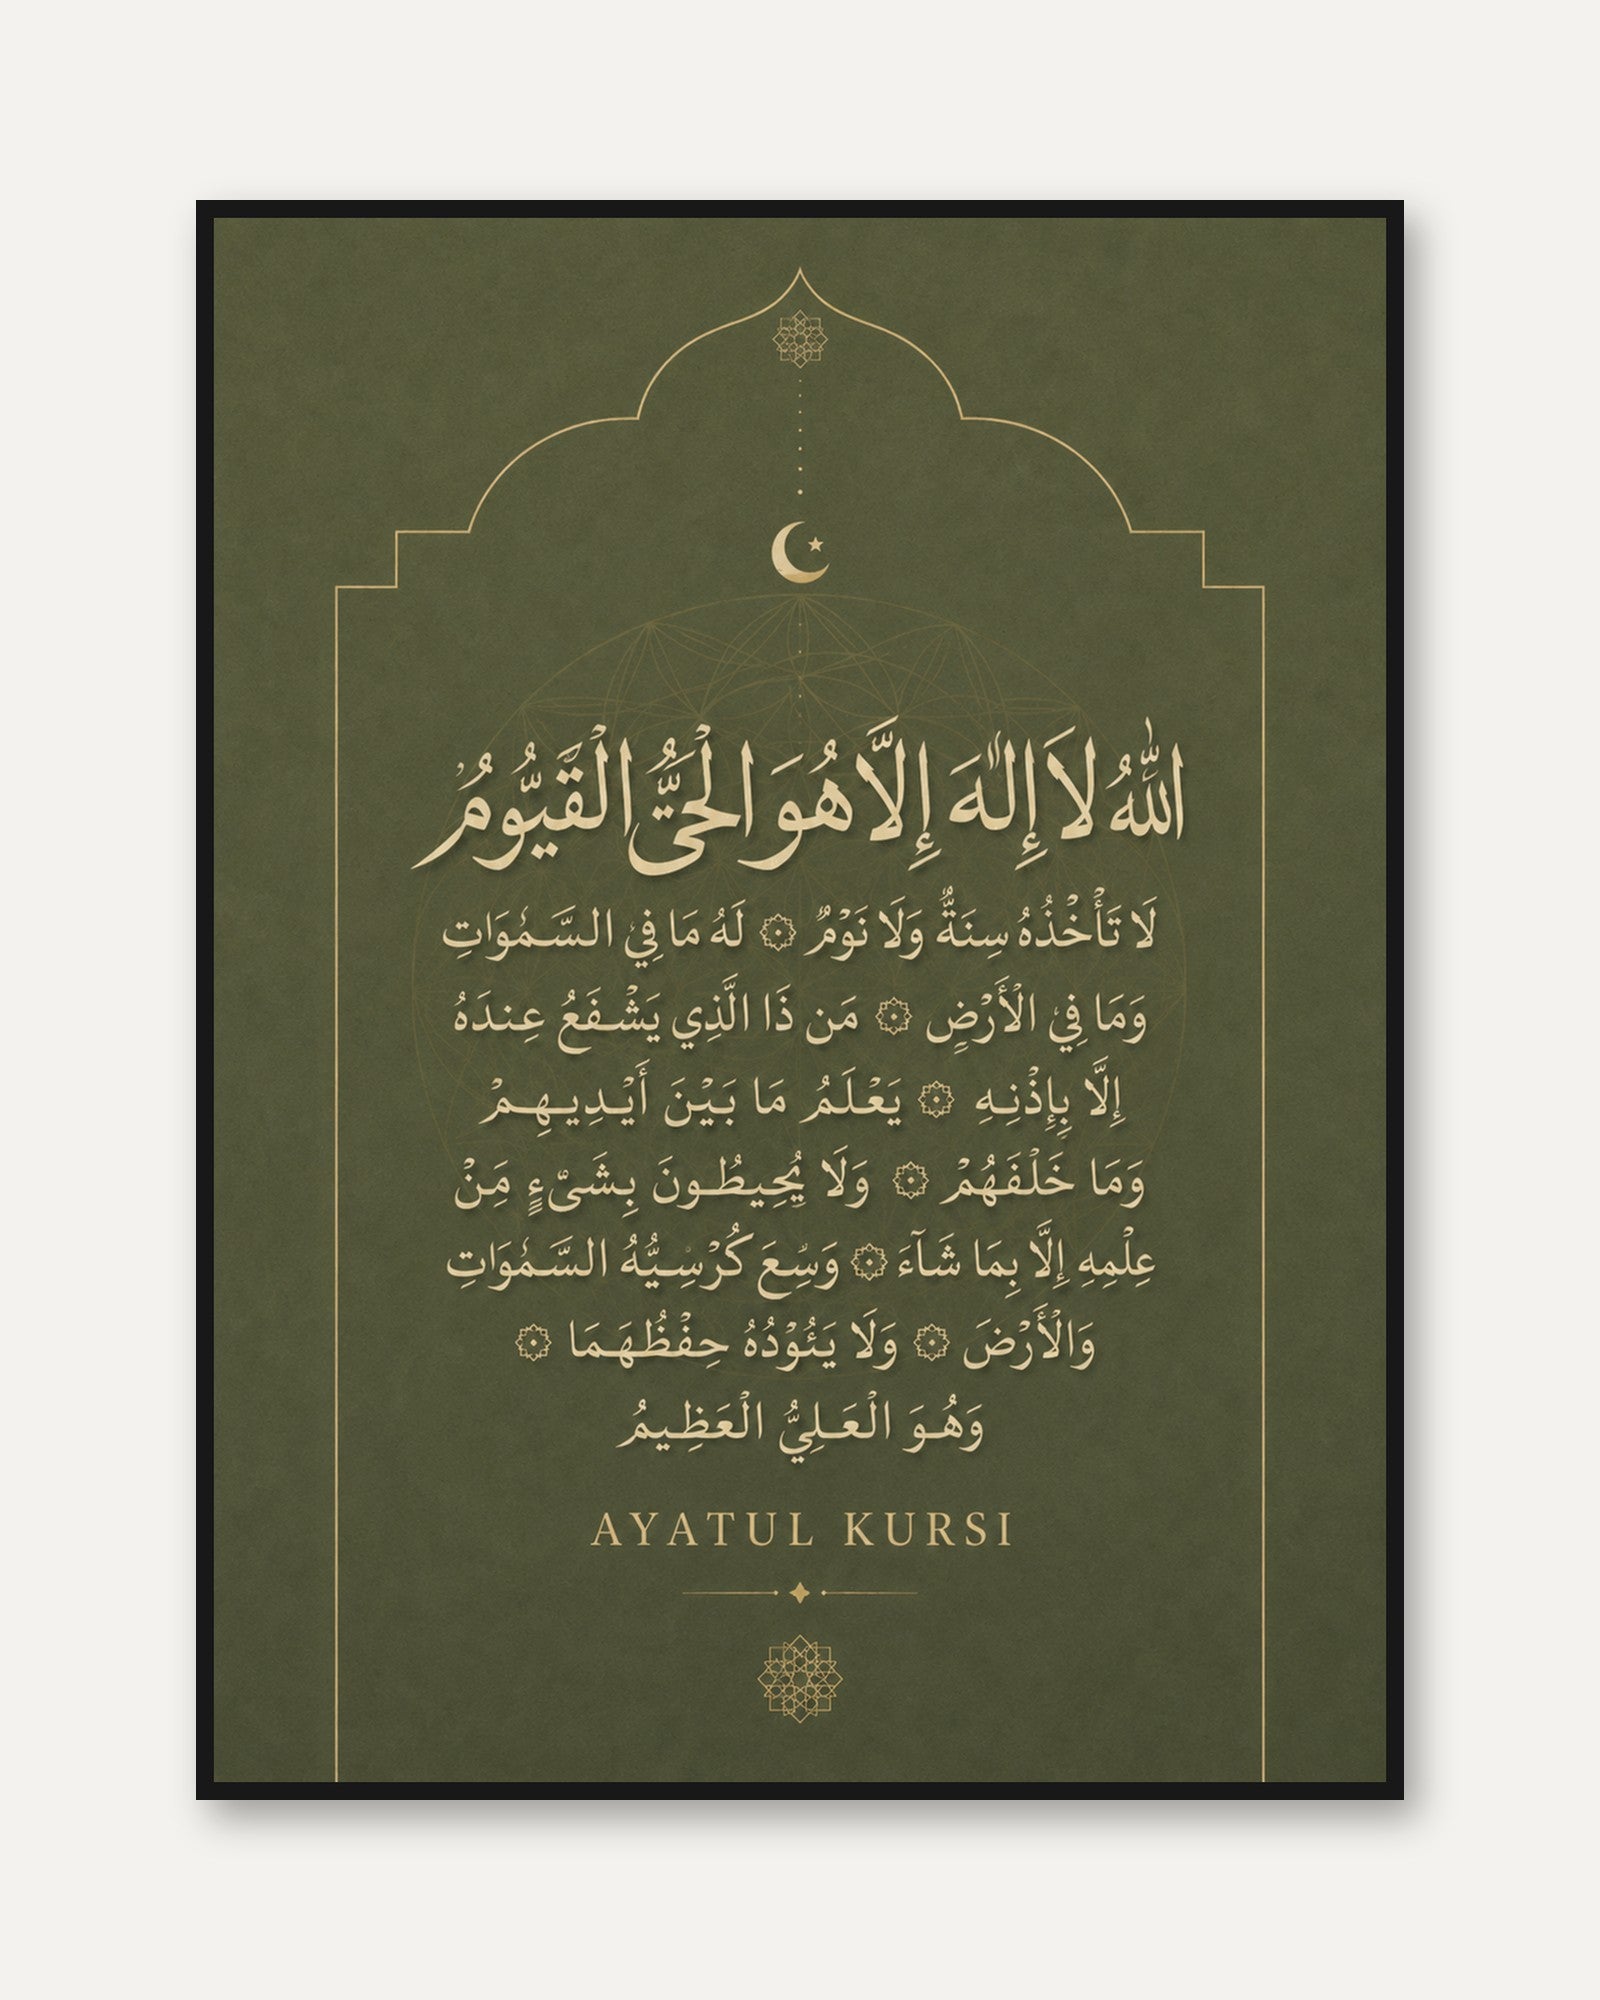 اللَّهُ لَا إِلَٰهَ إِلَّا هُوَ الْحَيُّ الْقَيُّومُ
لَا تَأْخُذُهُ سِنَةٌ وَلَا نَوْمٌ ۞ لَهُ مَا فِي السَّمٰوَاتِ
وَمَا فِي الْأَرْضِ ۞ مَن ذَا الَّذِي يَشْفَعُ عِندَهُ
إِلَّا بِإِذْنِهِ ۞ يَعْلَمُ مَا بَيْنَ أَيْدِيهِمْ
وَمَا خَلْفَهُمْ ۞ وَلَا يُحِيطُونَ بِشَىْءٍ مَِنْ
عِلْمِهِ إِلَّا بِمَا شَآءَ ۞ وَسِعَ كُرْسِيُّهُ السَّمٰوَاتِ
وَالْأَرْضَ ۞ وَلَا يَئُوْدُهُ حِفْظُهَمَا ۞
وَهُوَ الْعَلِيُّ الْعَظِيمُ
AYATUL KURSI